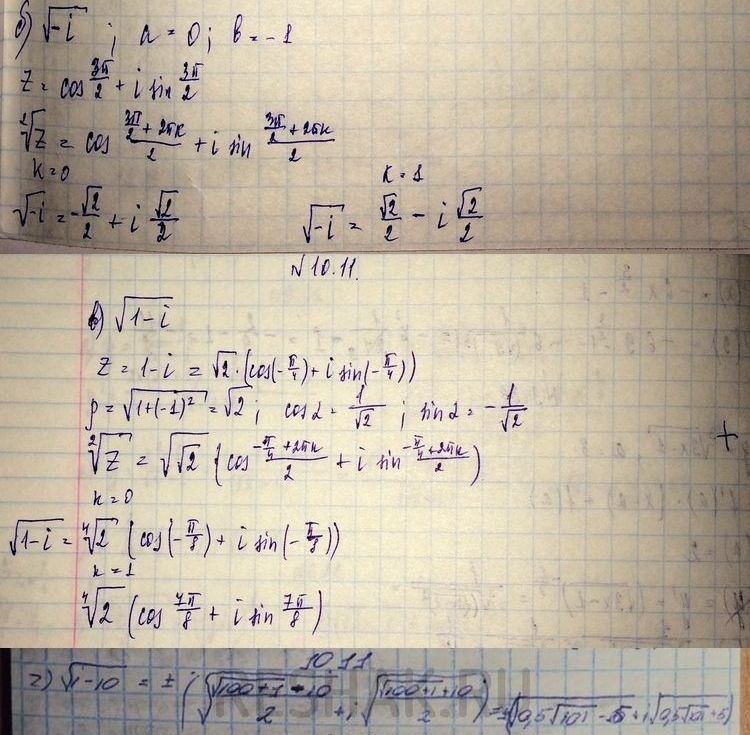 б) √-i ; a = 0; b = -1
z = cos 3π/2 + i sin 3π/2
²√z = cos (3π/2 + 2πk)/2 + i sin (3π/2 + 2πk)/2
k = 0 k = 1
√-i = -√2/2 + i √2/2 √-i = √2/2 - i √2/2
№10.11.
в) √1-i
z = 1 - i = √2 · (cos(-π/4) + i sin(-π/4))
ρ = √1+(-1)² = √2 ; cos α = 1/√2 ; sin α = -1/√2
²√z = √√2 (cos (-π/4 + 2πk)/2 + i sin (-π/4 + 2πk)/2)
+
k = 0
√1-i = ⁴√2 (cos(-π/8) + i sin(-π/8))
k = 1
⁴√2 (cos 7π/8 + i sin 7π/8)
10.11
г) √i-10 = ± (√(√100+1 - 10)/2 + i √(√100+1 + 10)/2) = ±(√0,5√101 - 5 + i √0,5√101 + 5)
RESHAK.RU